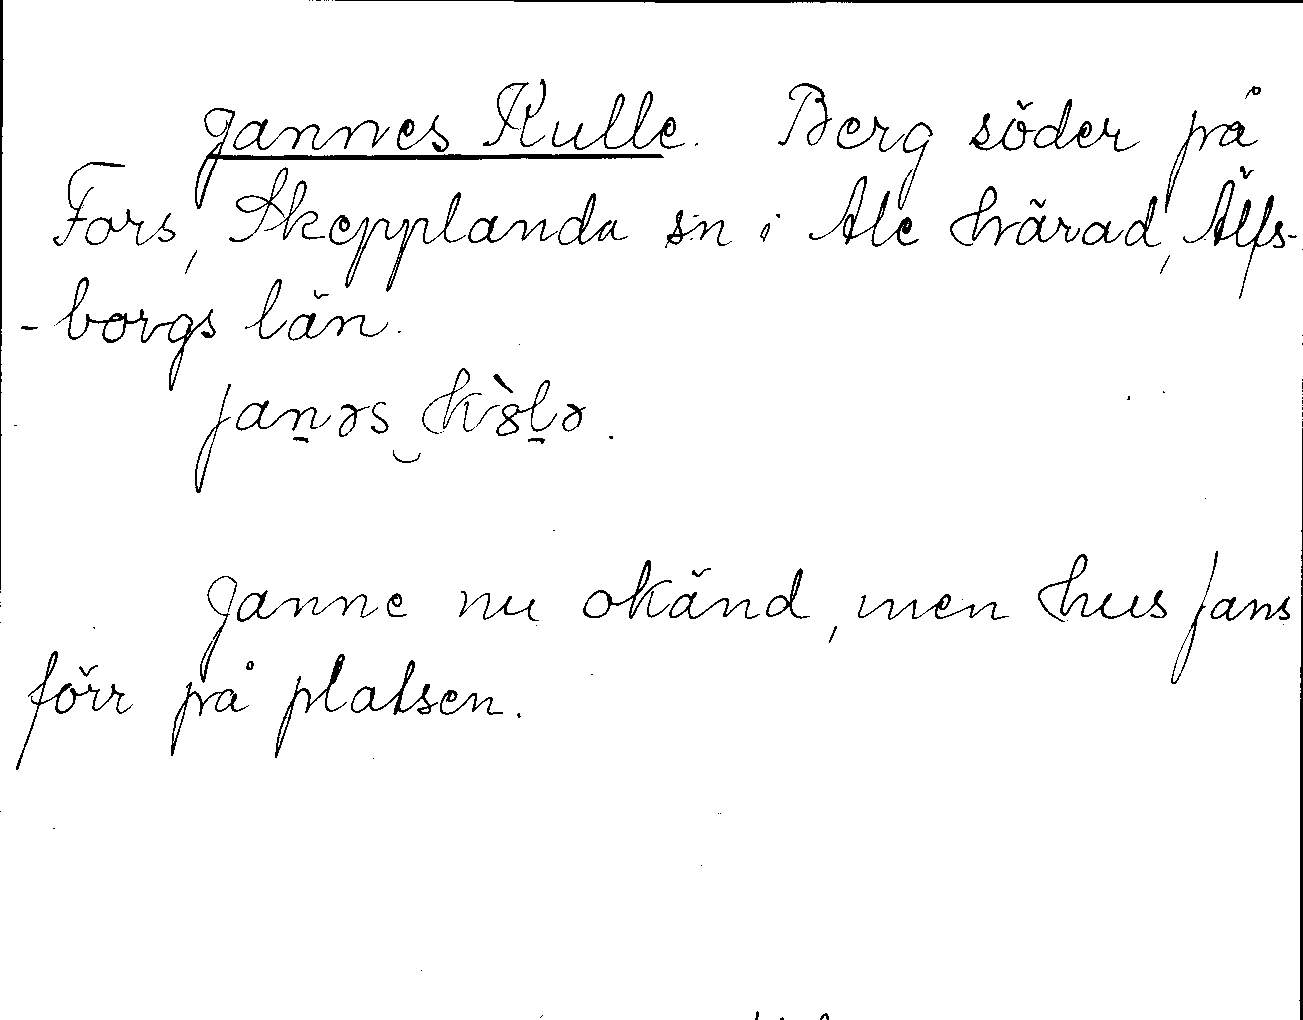 Jannes Kulle. Berg söder på
Fors, Skepplanda sn i Ale härad, Älfs-
-borgs län.
jan̠əs‿kὸl̠ə.
Janne nu okänd, men hus fans
förr på platsen.